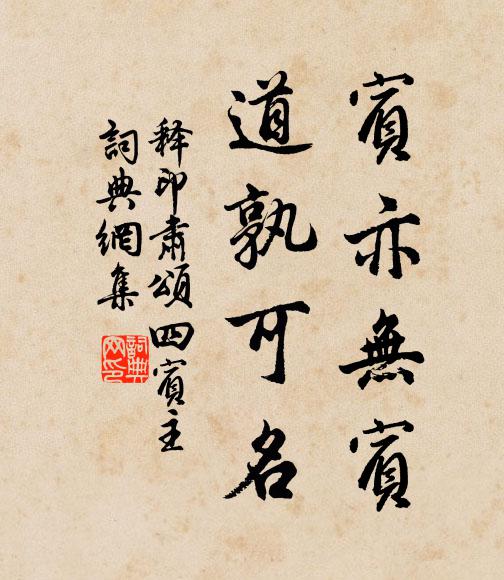 賓亦無賓
道孰可名
释印肅頌四賓主
詞典網集
詞典
网印